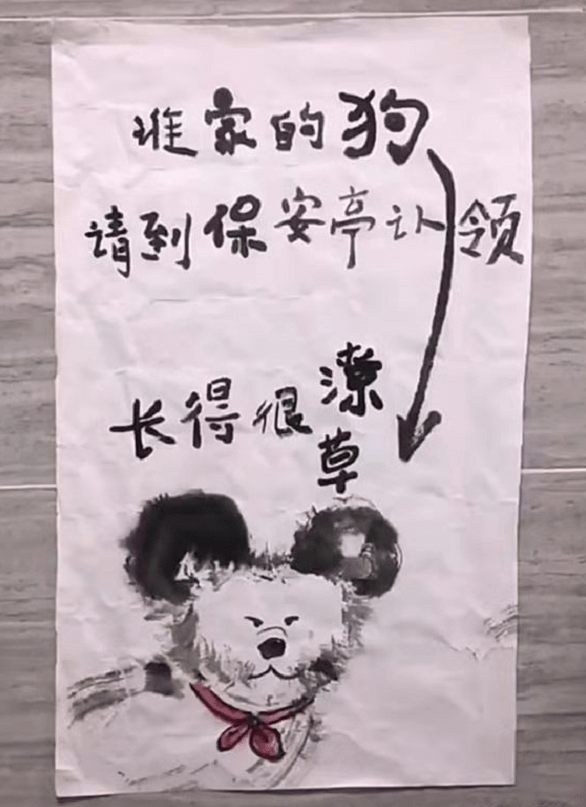 谁家的狗
请到保安亭认领
长得很潦草